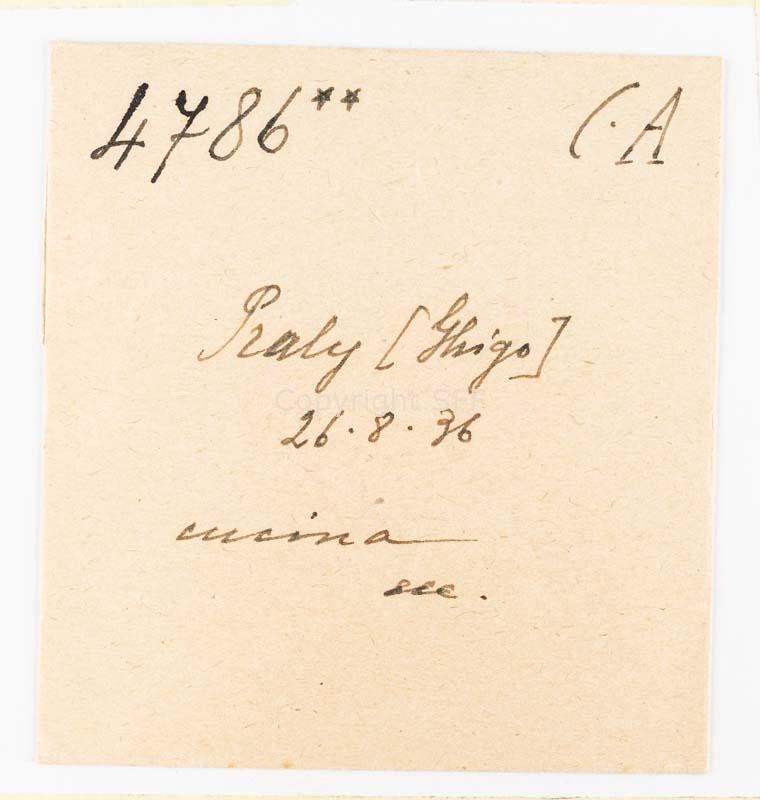 4786** C.A
Praly [Ghigo]
Copyright SEE
26.8.36
cucina